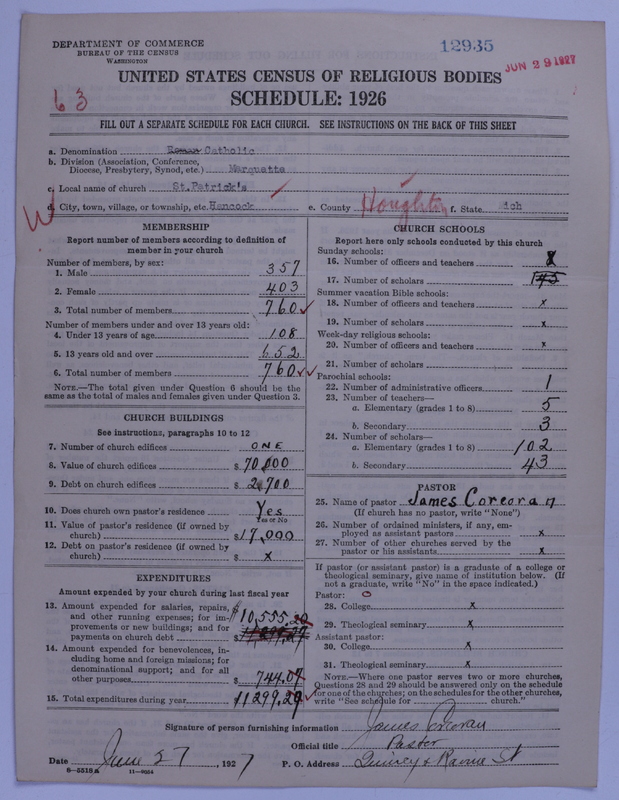 DEPARTMENT OF COMMERCE
BUREAU OF THE CENSUS
WASHINGTON
12935
JUN 29 1927
UNITED STATES CENSUS OF RELIGIOUS BODIES
63
SCHEDULE: 1926
FILL OUT A SEPARATE SCHEDULE FOR EACH CHURCH. SEE INSTRUCTIONS ON THE BACK OF THIS SHEET
a. Denomination Roman Catholic
b. Division (Association, Conference,
Diocese, Presbytery, Synod, etc.) Marquette
c. Local name of church St.Patrick's
W d. City, town, village, or township, etc. Hancock e. County Houghton f. State ich
MEMBERSHIP
Report number of members according to definition of
member in your church
Number of members, by sex:
1. Male 357
2. Female 403
3. Total number of members 760
Number of members under and over 13 years old:
4. Under 13 years of age 108
5. 13 years old and over 652
6. Total number of members 760
NOTE.—The total given under Question 6 should be the
same as the total of males and females given under Question 3.
CHURCH BUILDINGS
See instructions, paragraphs 10 to 12
7. Number of church edifices ONE
8. Value of church edifices $ 70,000
9. Debt on church edifices $ 2,700
10. Does church own pastor's residence Yes
Yes or No
11. Value of pastor's residence (if owned by
church) $ 17,000
12. Debt on pastor's residence (if owned by
church) $ x
EXPENDITURES
Amount expended by your church during last fiscal year
13. Amount expended for salaries, repairs,
and other running expenses; for im-
provements or new buildings; and for
payments on church debt $ 10,555.20
14. Amount expended for benevolences, in-
cluding home and foreign missions; for
denominational support; and for all
other purposes $ 744.07
15. Total expenditures during year $11299.27
CHURCH SCHOOLS
Report here only schools conducted by this church
Sunday schools:
16. Number of officers and teachers
17. Number of scholars 145
Summer vacation Bible schools:
18. Number of officers and teachers x
19. Number of scholars x
Week-day religious schools:
20. Number of officers and teachers x
21. Number of scholars
Parochial schools:
22. Number of administrative officers 1
23. Number of teachers—
a. Elementary (grades 1 to 8) 5
b. Secondary 3
24. Number of scholars—
a. Elementary (grades 1 to 8) 102
b. Secondary 43
PASTOR
25. Name of pastor James Corcoran
(If church has no pastor, write "None")
26. Number of ordained ministers, if any, em-
ployed as assistant pastors x
27. Number of other churches served by the
pastor or his assistants x
If pastor (or assistant pastor) is a graduate of a college or
theological seminary, give name of institution below. (If
not a graduate, write "No" in the space indicated.)
Pastor: O
28. College x
29. Theological seminary x
Assistant pastor:
30. College x
31. Theological seminary x
NOTE.—Where one pastor serves two or more churches,
Questions 28 and 29 should be answered only on the schedule
for one of the churches; on the schedules for the other churches,
write "See schedule for church."
Signature of person furnishing information James Corcoran
Official title Pastor
Date June 27, 1927 P. O. Address Quincy & Ravine St
6-5518a 11-9004